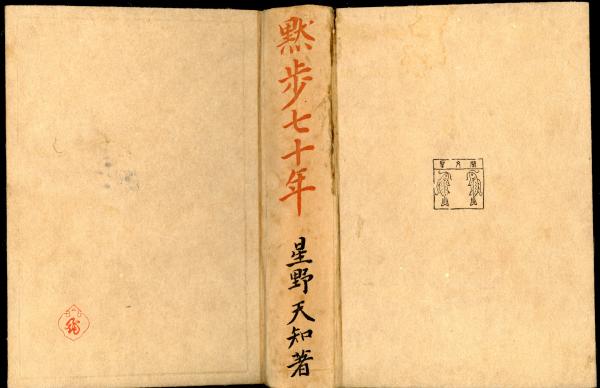 黙歩七十年
星野天知著